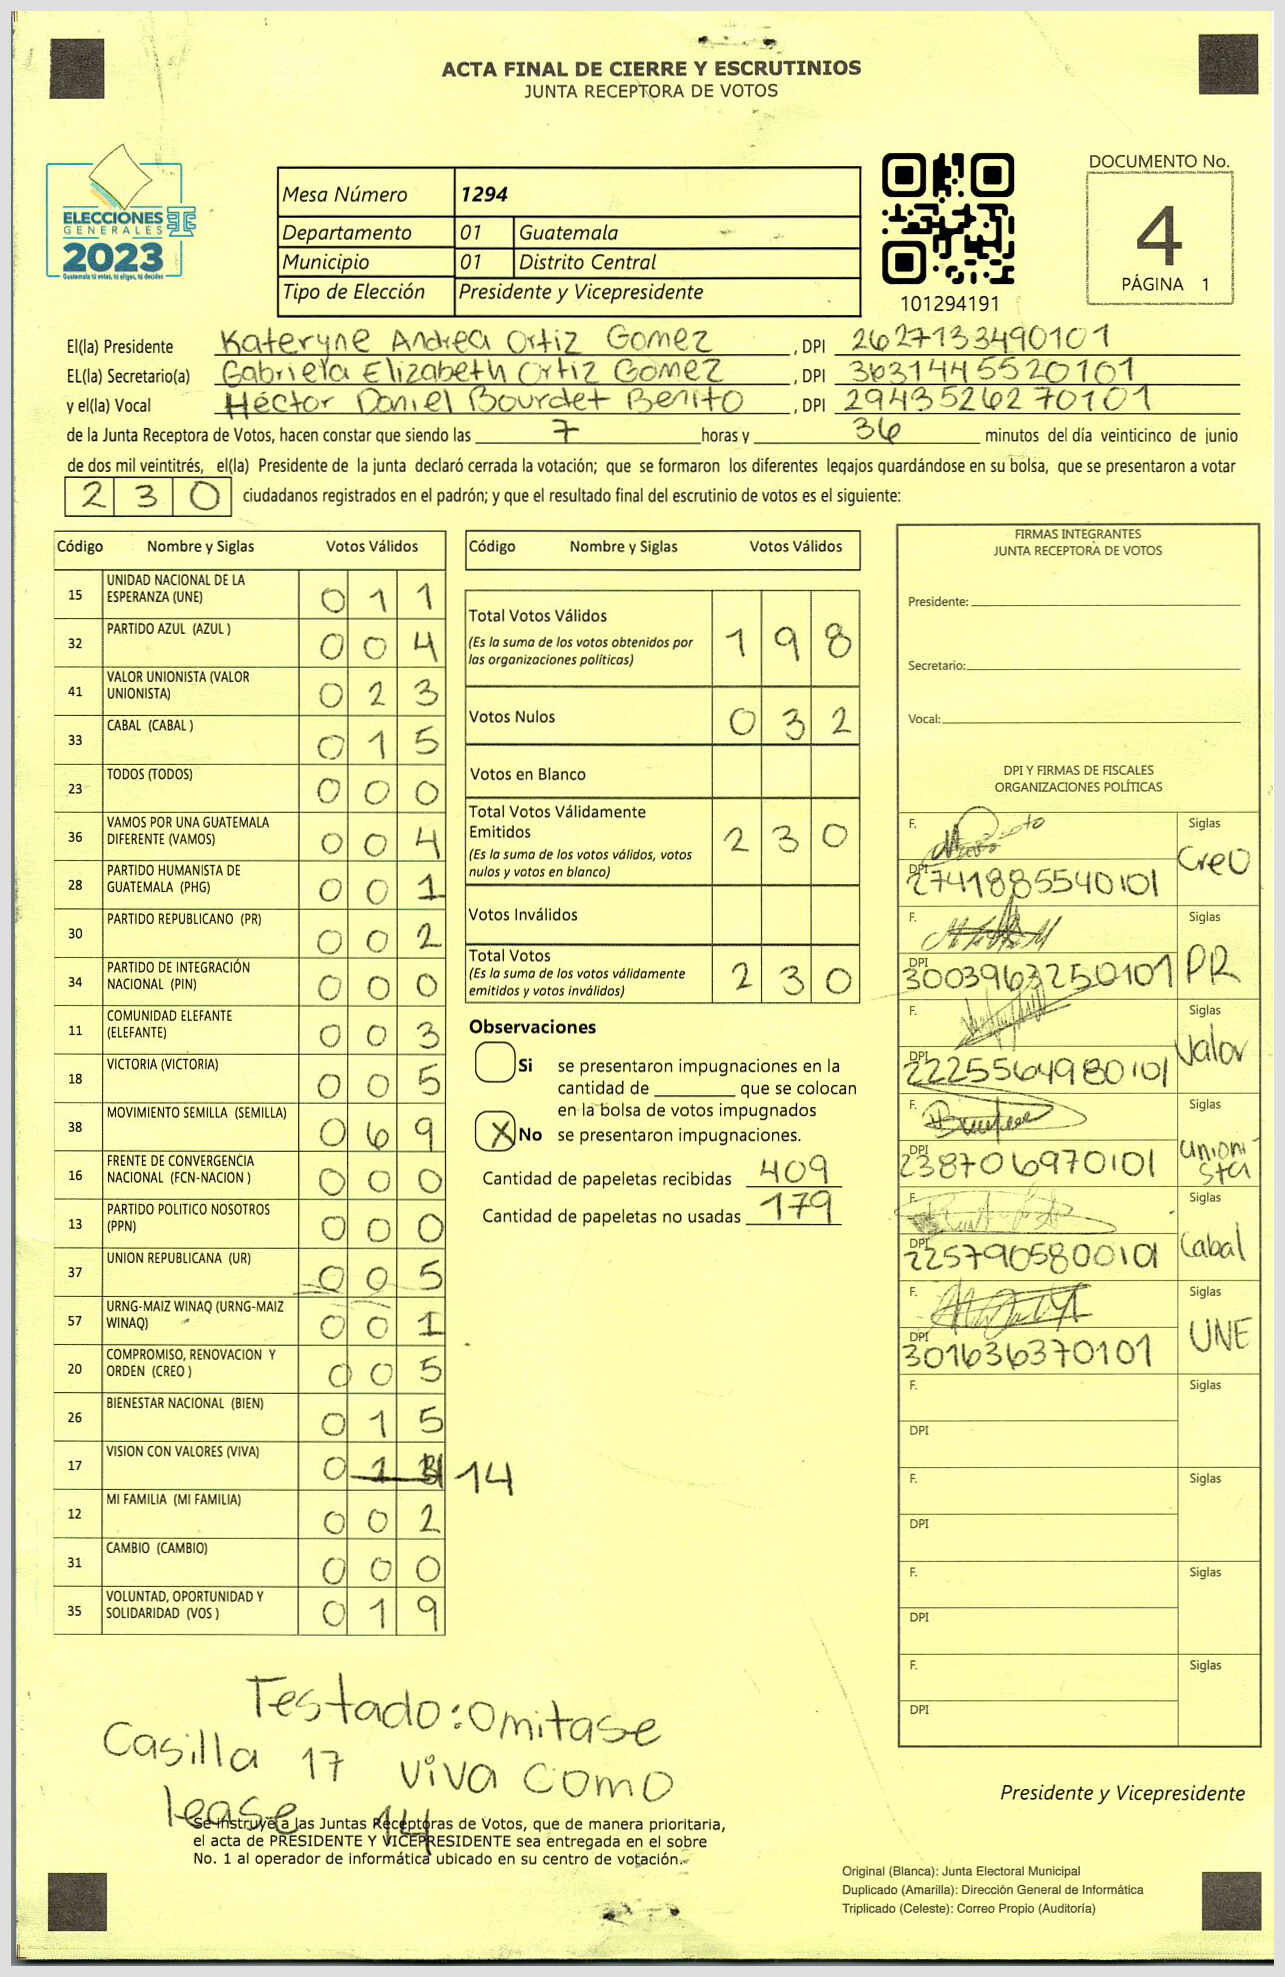 ACTA FINAL DE CIERRE Y ESCRUTINIOS
JUNTA RECEPTORA DE VOTOS
ELECCIONES
GENERALES
2023
Guatemala tú votas, tú eliges, tú decides
Mesa Número 1294
Departamento 01 Guatemala
Municipio 01 Distrito Central
Tipo de Elección Presidente y Vicepresidente
101294191
DOCUMENTO No.
4
PÁGINA 1
El(la) Presidente Kateryne Andrea Ortiz Gomez , DPI 2627133490101
EL(la) Secretario(a) Gabriela Elizabeth Ortiz Gomez , DPI 3631445520101
y el(la) Vocal Héctor Daniel Bourdet Benito , DPI 2943526270101
de la Junta Receptora de Votos, hacen constar que siendo las 7 horas y 36 minutos del día veinticinco de junio
de dos mil veintitrés, el(la) Presidente de la junta declaró cerrada la votación; que se formaron los diferentes legajos guardándose en su bolsa, que se presentaron a votar
230 ciudadanos registrados en el padrón; y que el resultado final del escrutinio de votos es el siguiente:
Código Nombre y Siglas Votos Válidos
15 UNIDAD NACIONAL DE LA ESPERANZA (UNE) 011
32 PARTIDO AZUL (AZUL ) 004
41 VALOR UNIONISTA (VALOR UNIONISTA) 023
33 CABAL (CABAL ) 015
23 TODOS (TODOS) 000
36 VAMOS POR UNA GUATEMALA DIFERENTE (VAMOS) 004
28 PARTIDO HUMANISTA DE GUATEMALA (PHG) 001
30 PARTIDO REPUBLICANO (PR) 002
34 PARTIDO DE INTEGRACIÓN NACIONAL (PIN) 000
11 COMUNIDAD ELEFANTE (ELEFANTE) 003
18 VICTORIA (VICTORIA) 005
38 MOVIMIENTO SEMILLA (SEMILLA) 069
16 FRENTE DE CONVERGENCIA NACIONAL (FCN-NACION ) 000
13 PARTIDO POLITICO NOSOTROS (PPN) 000
37 UNION REPUBLICANA (UR) 005
57 URNG-MAIZ WINAQ (URNG-MAIZ WINAQ) 001
20 COMPROMISO, RENOVACION Y ORDEN (CREO ) 005
26 BIENESTAR NACIONAL (BIEN) 015
17 VISION CON VALORES (VIVA) 0 14
12 MI FAMILIA (MI FAMILIA) 002
31 CAMBIO (CAMBIO) 000
35 VOLUNTAD, OPORTUNIDAD Y SOLIDARIDAD (VOS ) 019
Código Nombre y Siglas Votos Válidos
Total Votos Válidos 198
(Es la suma de los votos obtenidos por
las organizaciones políticas)
Votos Nulos 032
Votos en Blanco
Total Votos Válidamente
Emitidos 230
(Es la suma de los votos válidos, votos
nulos y votos en blanco)
Votos Inválidos
Total Votos 230
(Es la suma de los votos válidamente
emitidos y votos inválidos)
Observaciones
Si se presentaron impugnaciones en la
cantidad de ________ que se colocan
en la bolsa de votos impugnados
X No se presentaron impugnaciones.
Cantidad de papeletas recibidas 409
Cantidad de papeletas no usadas 179
FIRMAS INTEGRANTES
JUNTA RECEPTORA DE VOTOS
Presidente:
Secretario:
Vocal:
DPI Y FIRMAS DE FISCALES
ORGANIZACIONES POLÍTICAS
F. Siglas
DPI 2741885540101 Creo
F. Siglas
DPI 3003963250101 PR
F. Siglas
DPI 2225564980101 Valor
F. Siglas
DPI 238706970101 Unionista
F. Siglas
DPI 2257905800101 Cabal
F. Siglas
DPI 301636370101 UNE
F. Siglas
DPI
F. Siglas
DPI
F. Siglas
DPI
F. Siglas
DPI
Testado: Omitase
Casilla 17 viva como
lease 14
Se instruye a las Juntas Receptoras de Votos, que de manera prioritaria,
el acta de PRESIDENTE Y VICEPRESIDENTE sea entregada en el sobre
No. 1 al operador de informática ubicado en su centro de votación.
Presidente y Vicepresidente
Original (Blanca): Junta Electoral Municipal
Duplicado (Amarilla): Dirección General de Informática
Triplicado (Celeste): Correo Propio (Auditoría)